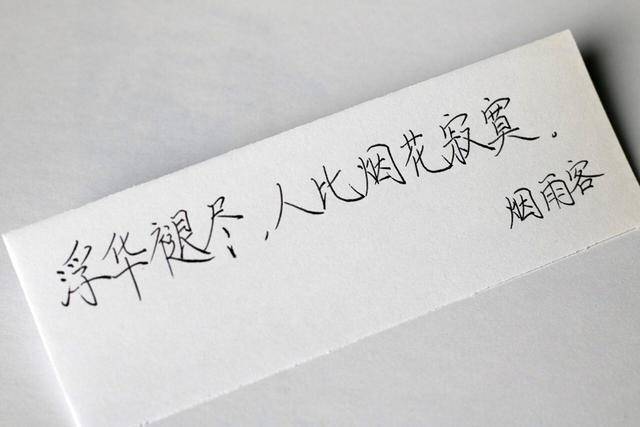 浮华褪尽,人比烟花寂寞.
烟雨客